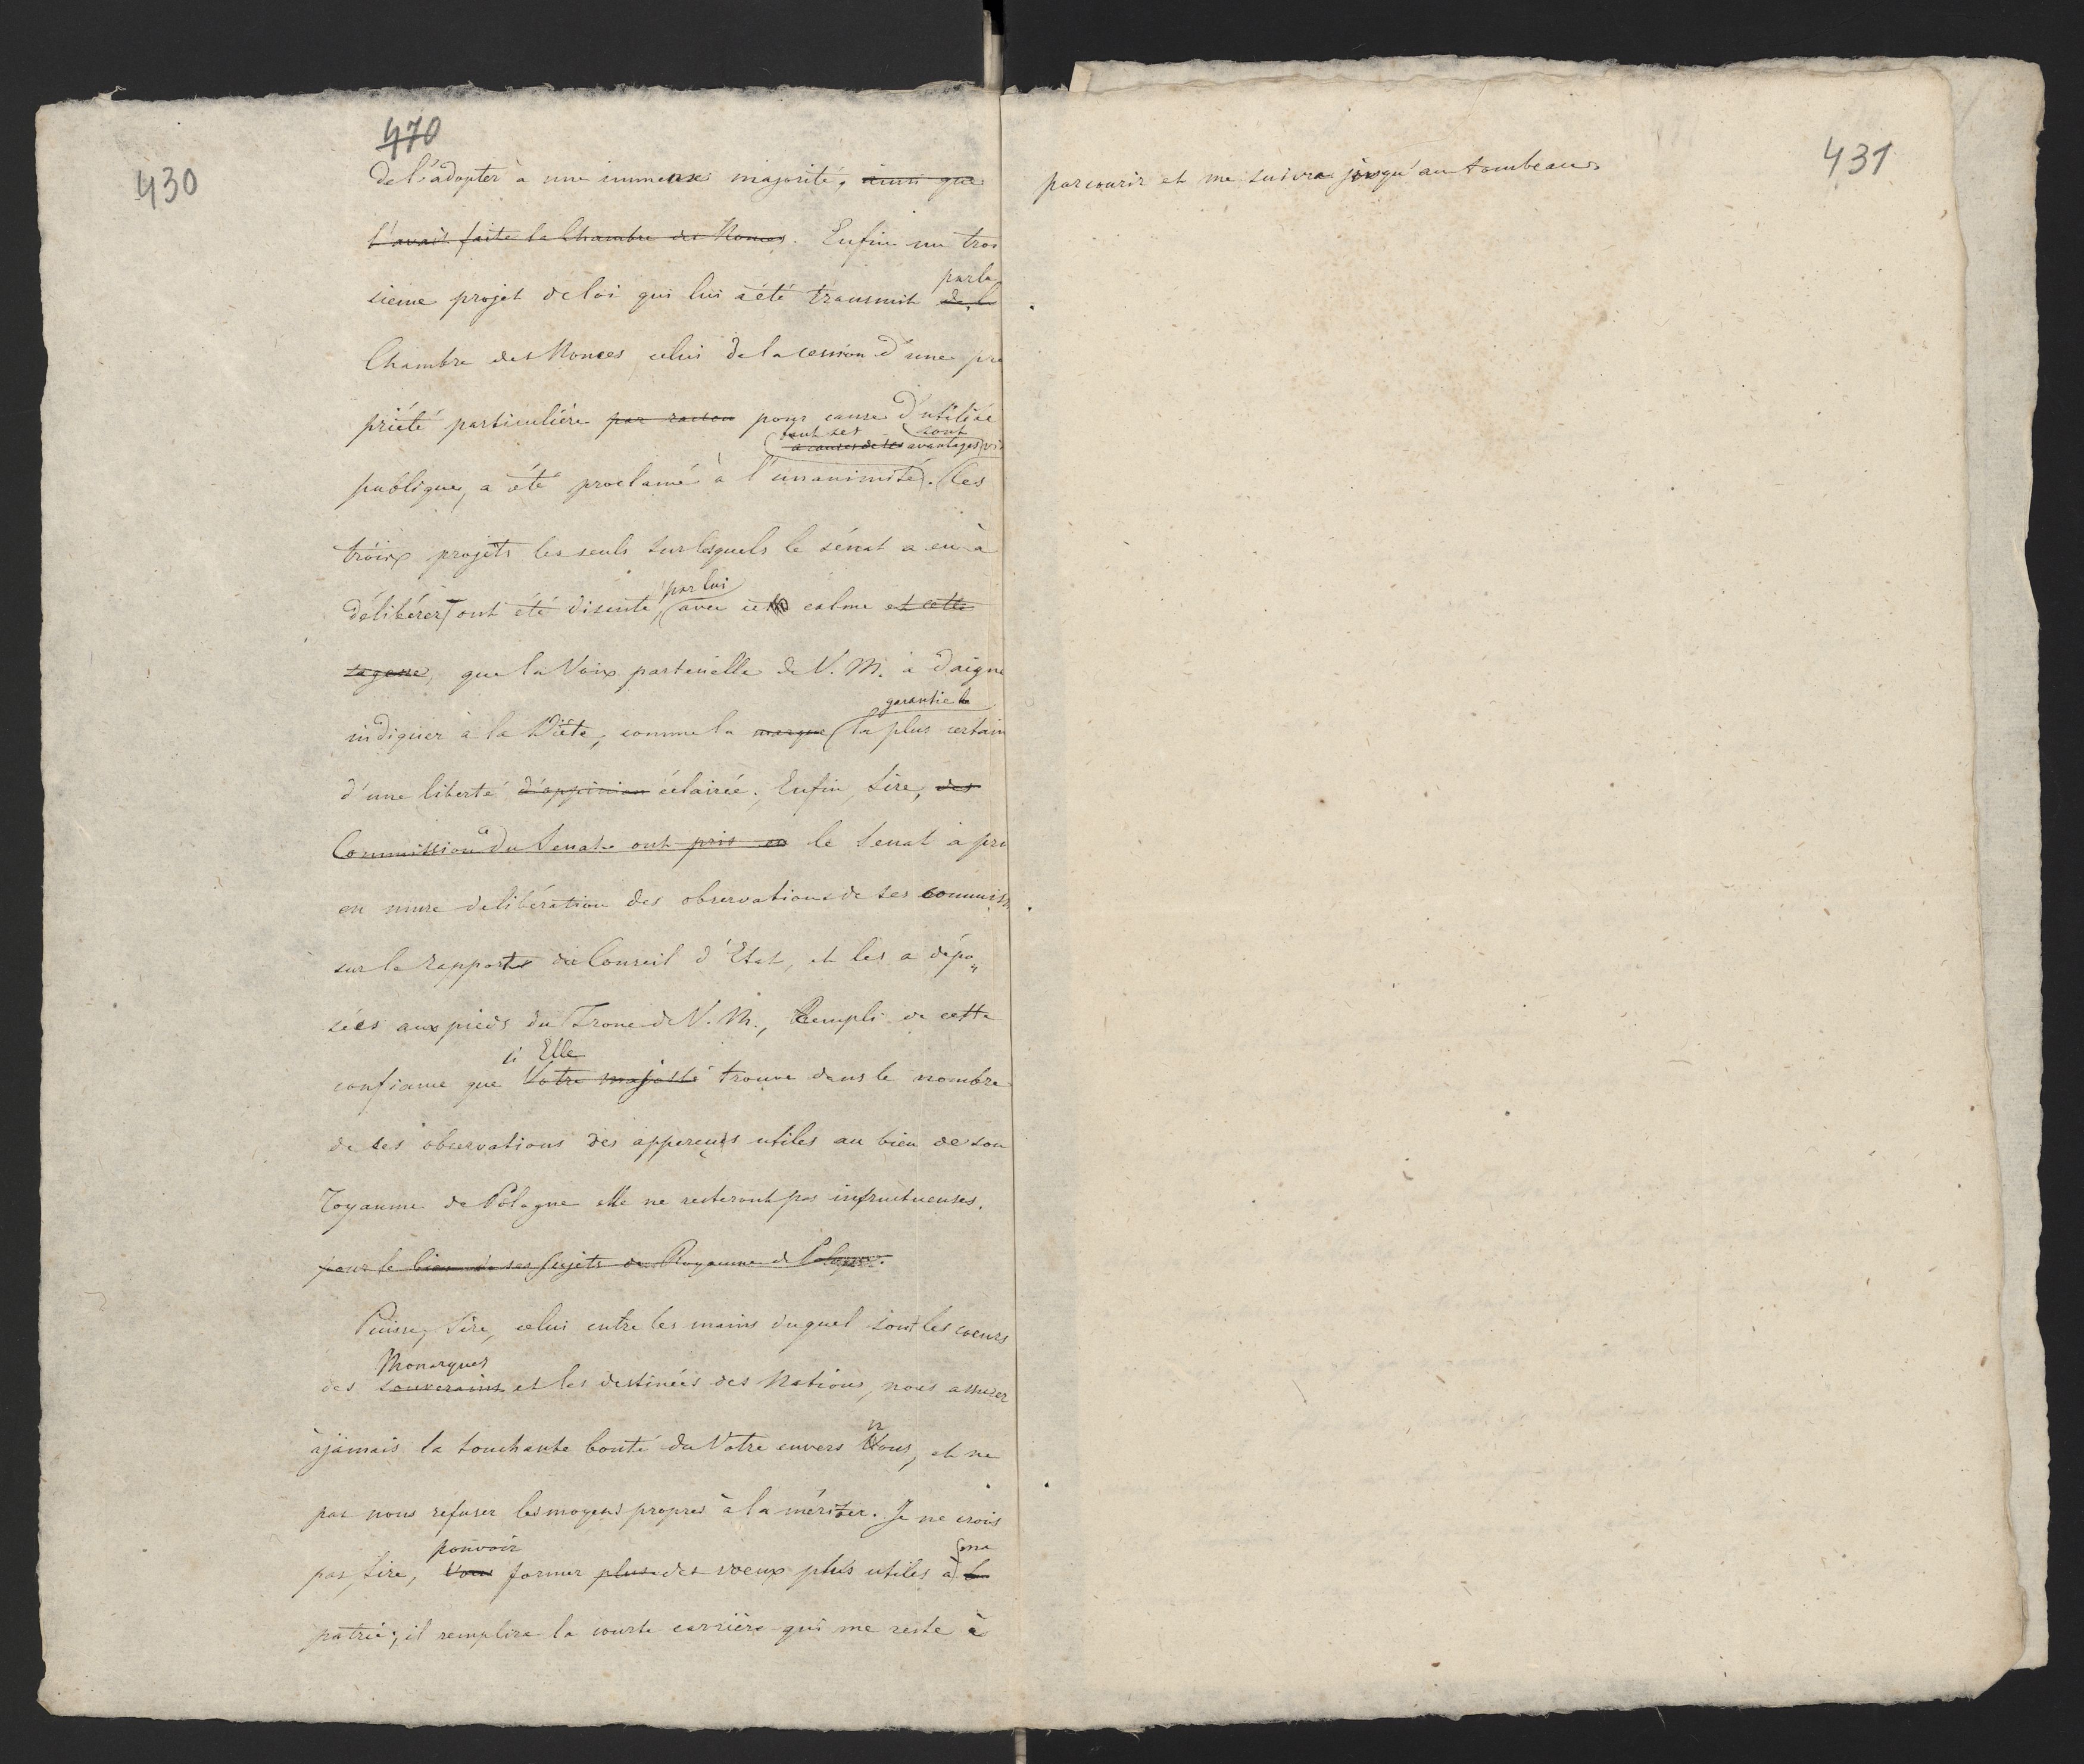 470
430
de l'adopter à une immense majorité, ainsi que
l'avait faite la Chambre des Nonces. Enfin un troi
sieme projet de loi qui lui a été transmit de la
par la
Chambre des Nonces, celui de la cession d'une pro
priété particulière par raison pour cause d'utilité
tant ses sont
a causes de ses avantages
publique, a été proclamé à l'unanimité. Ces
troix projets les seuls sur lesquels le sénat a eu à
par lui
délibérer, ont été discuté, avec ce calme et cette
sagesse, que la Voix parternelle de V. M. a daigné
garantie la
indiquer à la Diète, comme la marque la plus certain
d'une liberté d'oppinion éclairée. Enfin, Sire, des
Commission du Senat ont pris en le Senat a pri
en mure delibération des observations de ses commiss
sur le rapport du Conseil d'Etat, et les a dépo„
sées aux pieds du Trone de V. M., Rempli de cette
si Elle
confiance que Votre Majesté trouve dans le nombre
de ses observations des appercuës utiles au bien de son
royaume de Pologne elle ne resteront pas infructueuses.
pour le bien de ses sujets du Royaume de Pologne.
Puisse, Sire, celui entre les mains duquel sont les coeurs
Monarques
des Souverains et les destinées des Nations, nous assurer
àjamais la touchante bonté du Votre envers Nous, et ne
pas nous refuser les moyens propres à la mériter. Je ne crois
pouvoir ma
pas, Sire, vous former plus des voeux plus utiles à la
patrie; il remplira la courte carrière qui me reste à
431
parcourir et me suivra jusqu'au tombeau